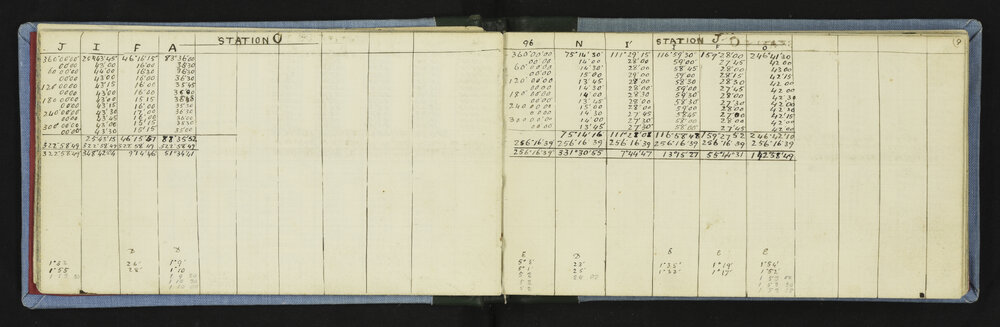 STATION O
J I F A
360°00'00 25°43'45" 46°16'15 88°36'00
00'00 45'00 16'00
60°00'00 44'00 16'30 36'30
00'00 44'00 16'00 36'30
120°00'00 43'15 16'00
00'00 43'00 16'00
180°00'00 43'00 15'15
00'00 43'15 16'00 35'30
240°00'00 43'30 16'00 36'30
00'00 43'45 16'00 36'00
300°00'00 43'30 15'15 35'30
00'00 43'30 15'15 35'00
25°43'51 46°15'51 88°35'52
322°58'49 322°58'49 322°58'49 322°58'49
322°58'49 51°34'41
D D
26' 1°9'
1°55 28' 1°10
STATION J
96 N I' F O
9
360°00'00 75°14'30' 111°29'15 116°59'30 159°28'00 246°41'30
00'00 14'00 28'00 59'00 27'45 42'00
60°00'00 14'30 28'00 58'45 28'00 43'00
00'00 15'00 29'00 59'00 28'15 42'15
120°00'00 13'45 28'00 58'30 28'30 42'00
00'00 14'30 28'00 59'00 27'45 42'00
180°00'00 14'00 28'30 59'30 28'00 42'30
00'00 13'45 28'00 58'30 27'30 42'00
240°00'00 15'00 28'00 59'00 28'00 42'30
00'00 14'30 27'45 58'45 42'00
300°00'00 14'00 27'30 58'00 28'00 42'30
00'00 13'45 27'30 58'00 27'45 42'00
75°14'16 111°28'08 116°58'48 159°27'52 246°42'10
256°16'39 256°16'39 256°16'39 256°16'39 256°16'39 256°16'39
256°16'39 331°30'55 7°44'47 13°15'27 55°44'31 142°58'49
E D E E E
5°3' 23' 1°35' 1°19' 1°54'
5°1 25' 1°33' 1°17' 1°52'
5 2 24 00
5 2